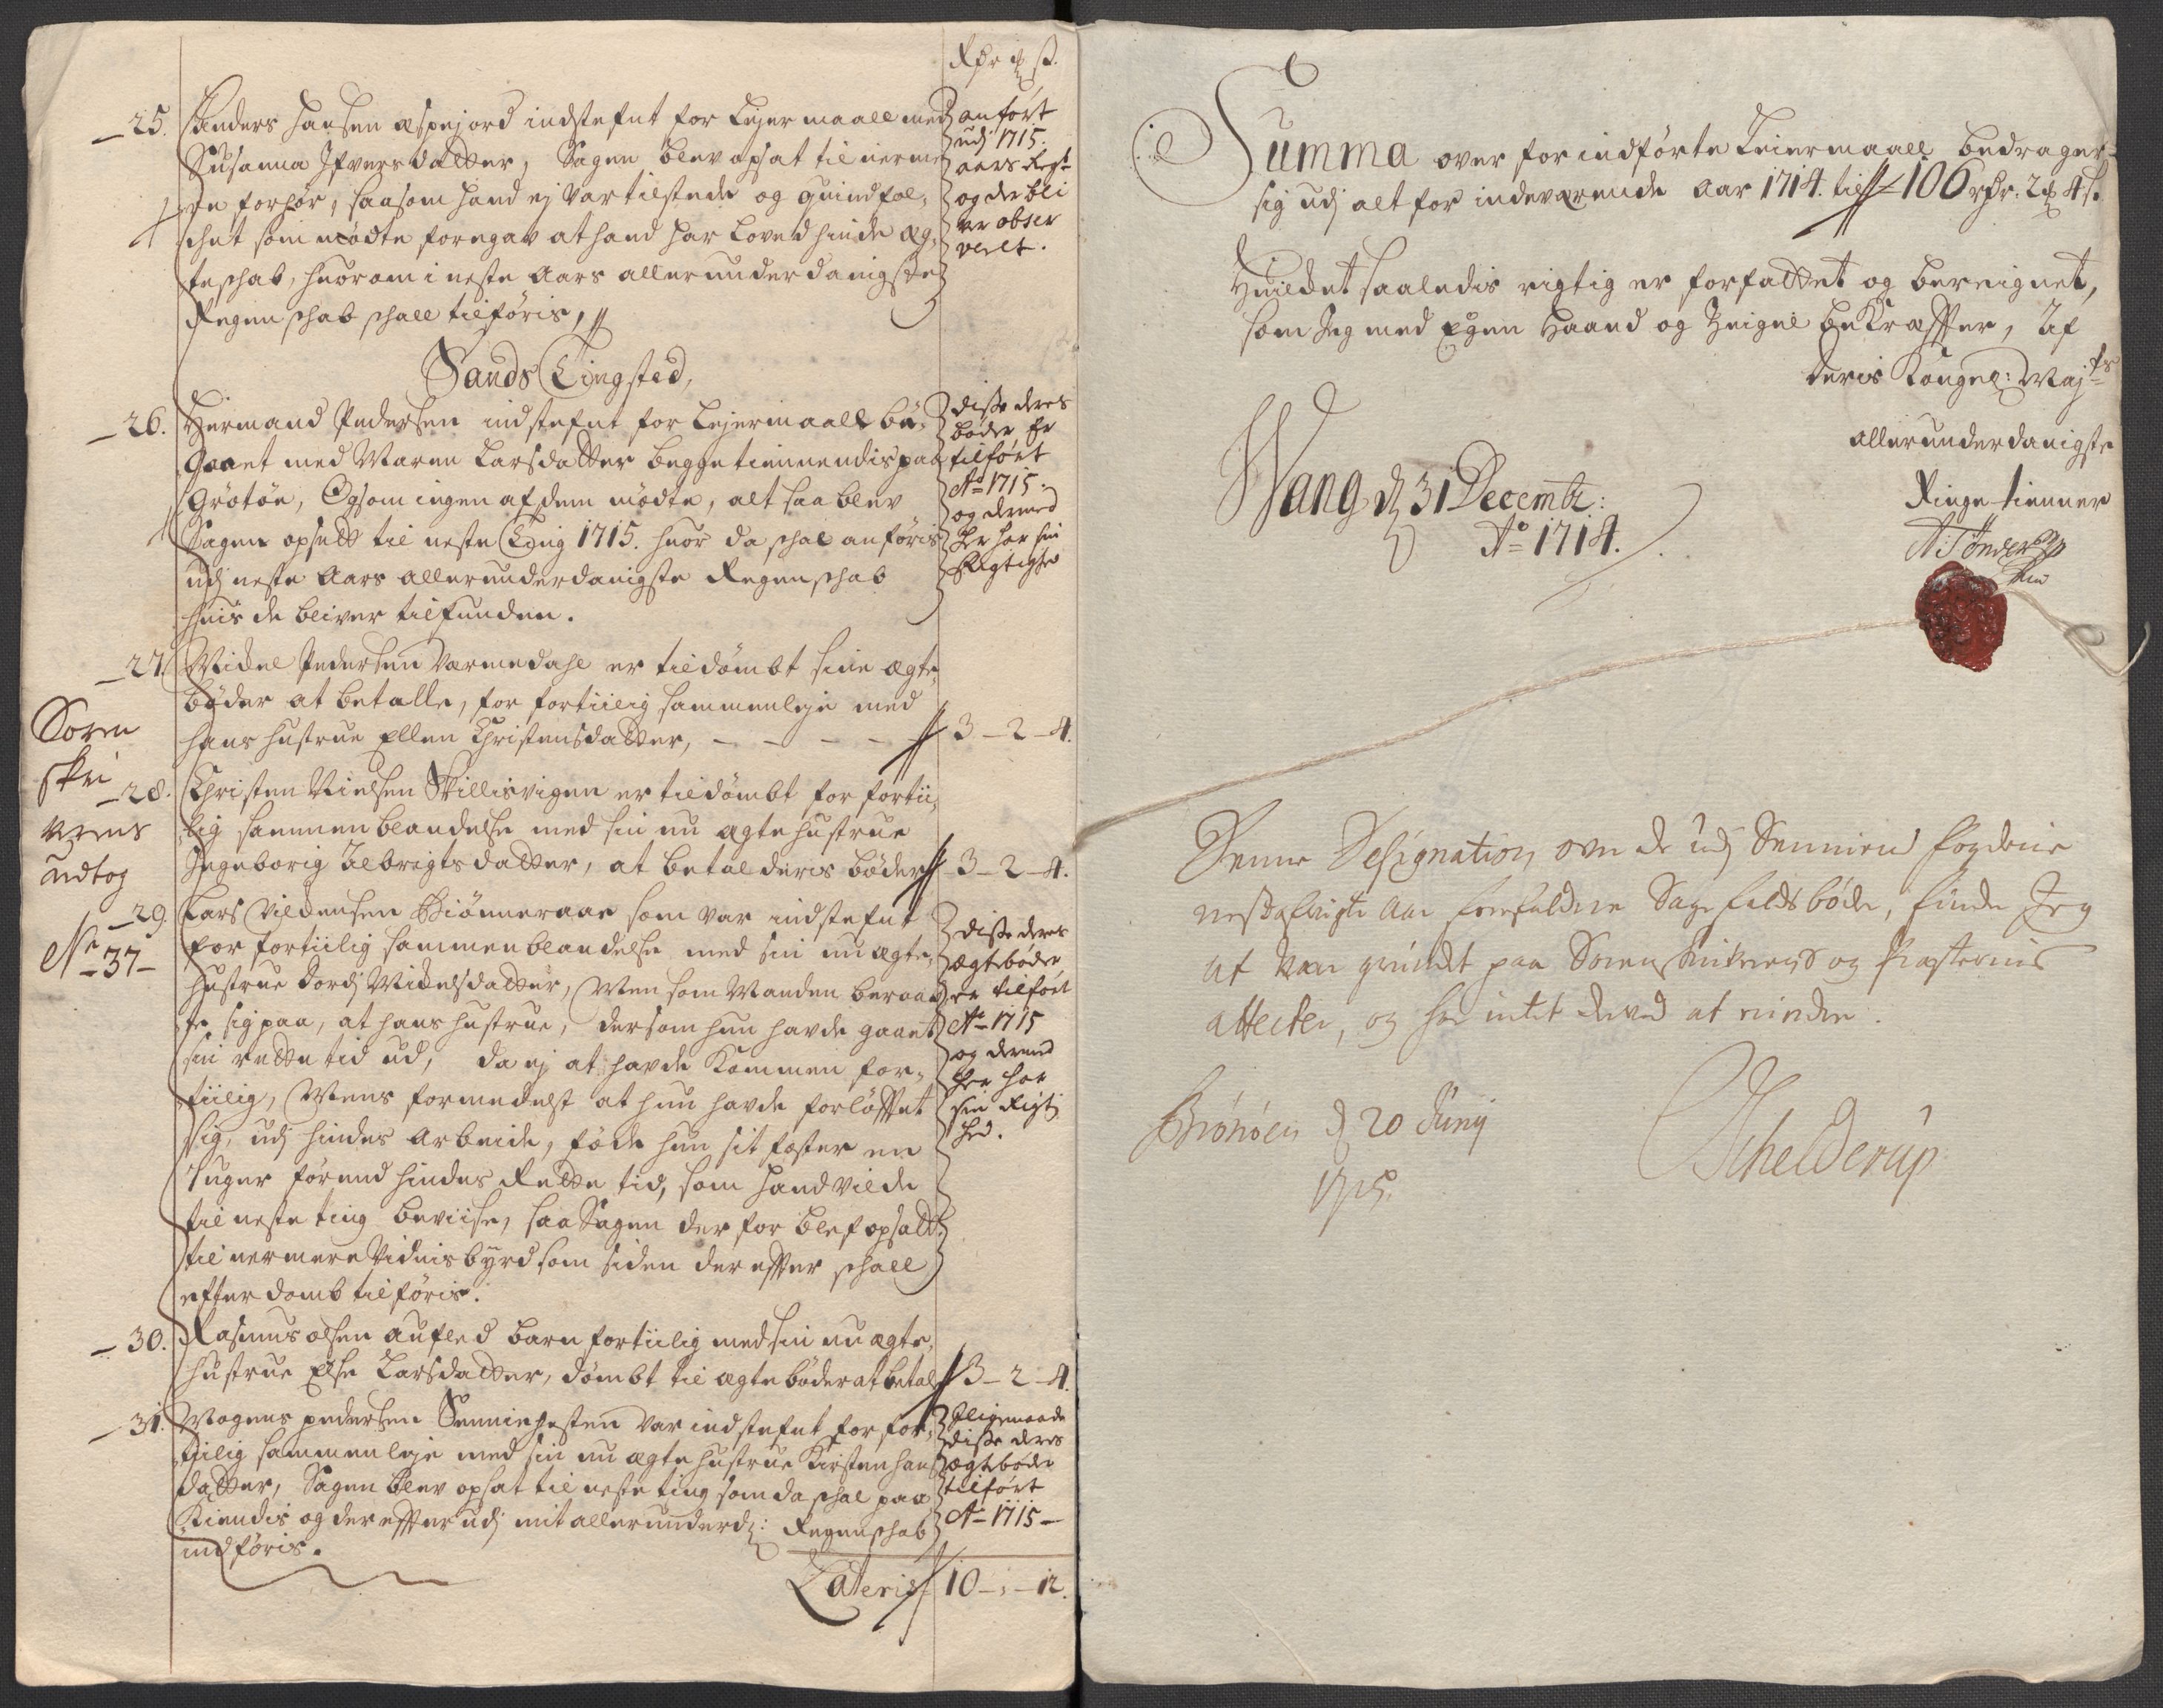 Rdr ort ß.
25. Anders Hansen Æspejord indstefnt for Lejermaall med
Susanna Ifversdatter, Sagen blev opsat til nerme
re forhør, saasom hand ej var tilstede og quindfol,
chet som mødte foregav at hand har loved hinde æg,
teschab, huorom i neste Aars allerunderdanigste
Regenschab schall tilføris,
anført
udj 1715.
aars Regsk
og der bli
ver obser
verlt.
Sands Tingsted,
26. Hermand Pedersen indstefnt for Lejermaall be,
gaaet med Maren Larsdatter begge tiennendis paa
Grøtøe, Og som ingen af dem mødte, alt saa blev
Sagen opsatt til neste Ting 1715. huor da schal anføris
udj neste Aars allerunderdanigste Regenschab
huis de bliver tilfunden.
disse deres
bøder Er
tilført
Ao 1715.
og dermed
her har sin
Rigtighed
27. Michel Pedersen Varmedahl er tildømbt sine ægte,
bøder at betalle, for fortiilig sammenleje med
hans hustrue Ellen Christensdatter, - - - - 3 - 2 - 4.
Soren
skri
verens
udtog
No 37
28. Christen Nielsen Skillisvigen er tildømbt for fortii,
lig sammenblandelse med sin nu ægte hustrue
Ingeborig Albrigtsdatter, at betal deris bøder 3 - 2 - 4.
29. Lars Villensen Biønneraae som var indstefnt
for fortiilig sammenblandelse med sin nu ægte,
hustrue Dordj Michelsdatter, Men som Manden beraab
te sig paa, at hans hustrue, dersom hun havde gaaet
sin rette tid ud, da ej at havde kommen for,
tiilig, Mens formedelst at hun havde forløfftet
sig, udj hindes Arbeide, føde hun sit foster en
7 uger førend hindes Rette tid, som hand vilde
til neste ting beviise, saa Sagen der for blef opsatt
til nermere Vidnisbyrd som siden der effter schall
effter domb tilføris.
disse deres
ægtebøder
er tilført
Ao 1715
og dermed
her har
sin Rigti
hed.
30. Rasmus olsen aufled barn fortiilig med sin nu ægte,
hustrue Else Larsdatter, dømbt til ægtebøder at betale 3 - 2 - 4.
31. Mogens pedersen Sennie hesten var indstefnt for for,
tiilig sammenleje med sin nu ægte hustrue Kirsten Hans
datter, Sagen blev opsat til neste ting som da schal paa
kiendis og der effter udj mit allerunderd: Regenschab
indføris.
Ligemaade
disse deres
ægtebøder
tilført
Ao 1715 -
Lateris 10 - 1 - 12.
Summa over forindførte Leiermaall bedrager
sig udj alt for indeværende Aar 1714. til 106 rdr. 2 ort 4 ß.
Huilchet saaledis rigtig er forfattet og beregnet,
som Jeg med Egen Haand og Zeignet bekræffter, Af
deris Kongel: Majts
allerunderdanigste
Ringe tienner
Wang d 31 Decembr:
Ao 1714.
Denne Designation, over de udj Senniens fogderie
nestafvigte Aar forefaldene Sagefaldsbøder, finder Jeg
at vær grundet paa Sorenskriverens og Præsternis
attester, og har intet derved at erindre.
Brønøen d 20 Junij
1715.
Schelderup